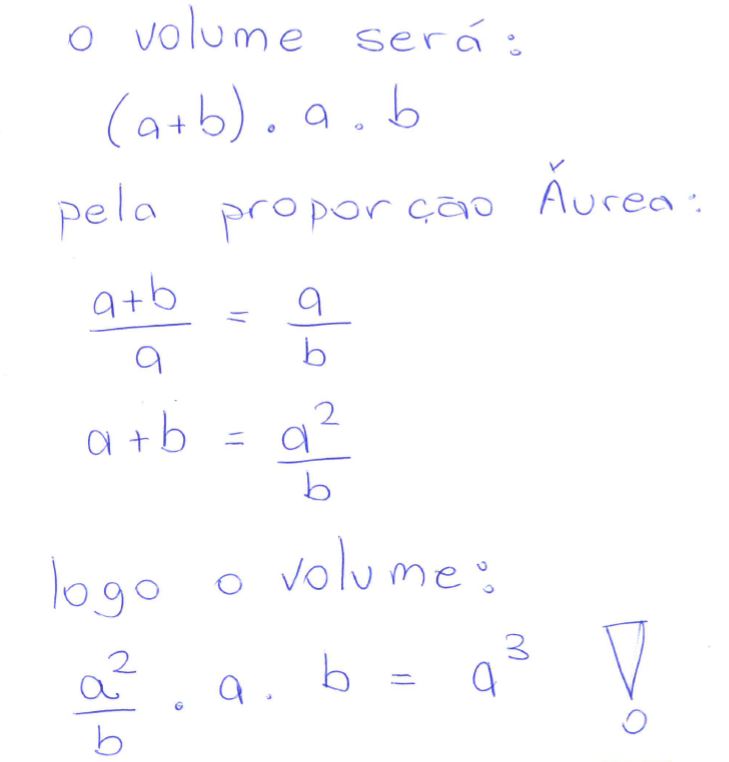 o volume será:
(a+b) . a . b
pela proporção Áurea:
a+b / a = a / b
a+b = a² / b
logo o volume:
a² / b . a . b = a³ !